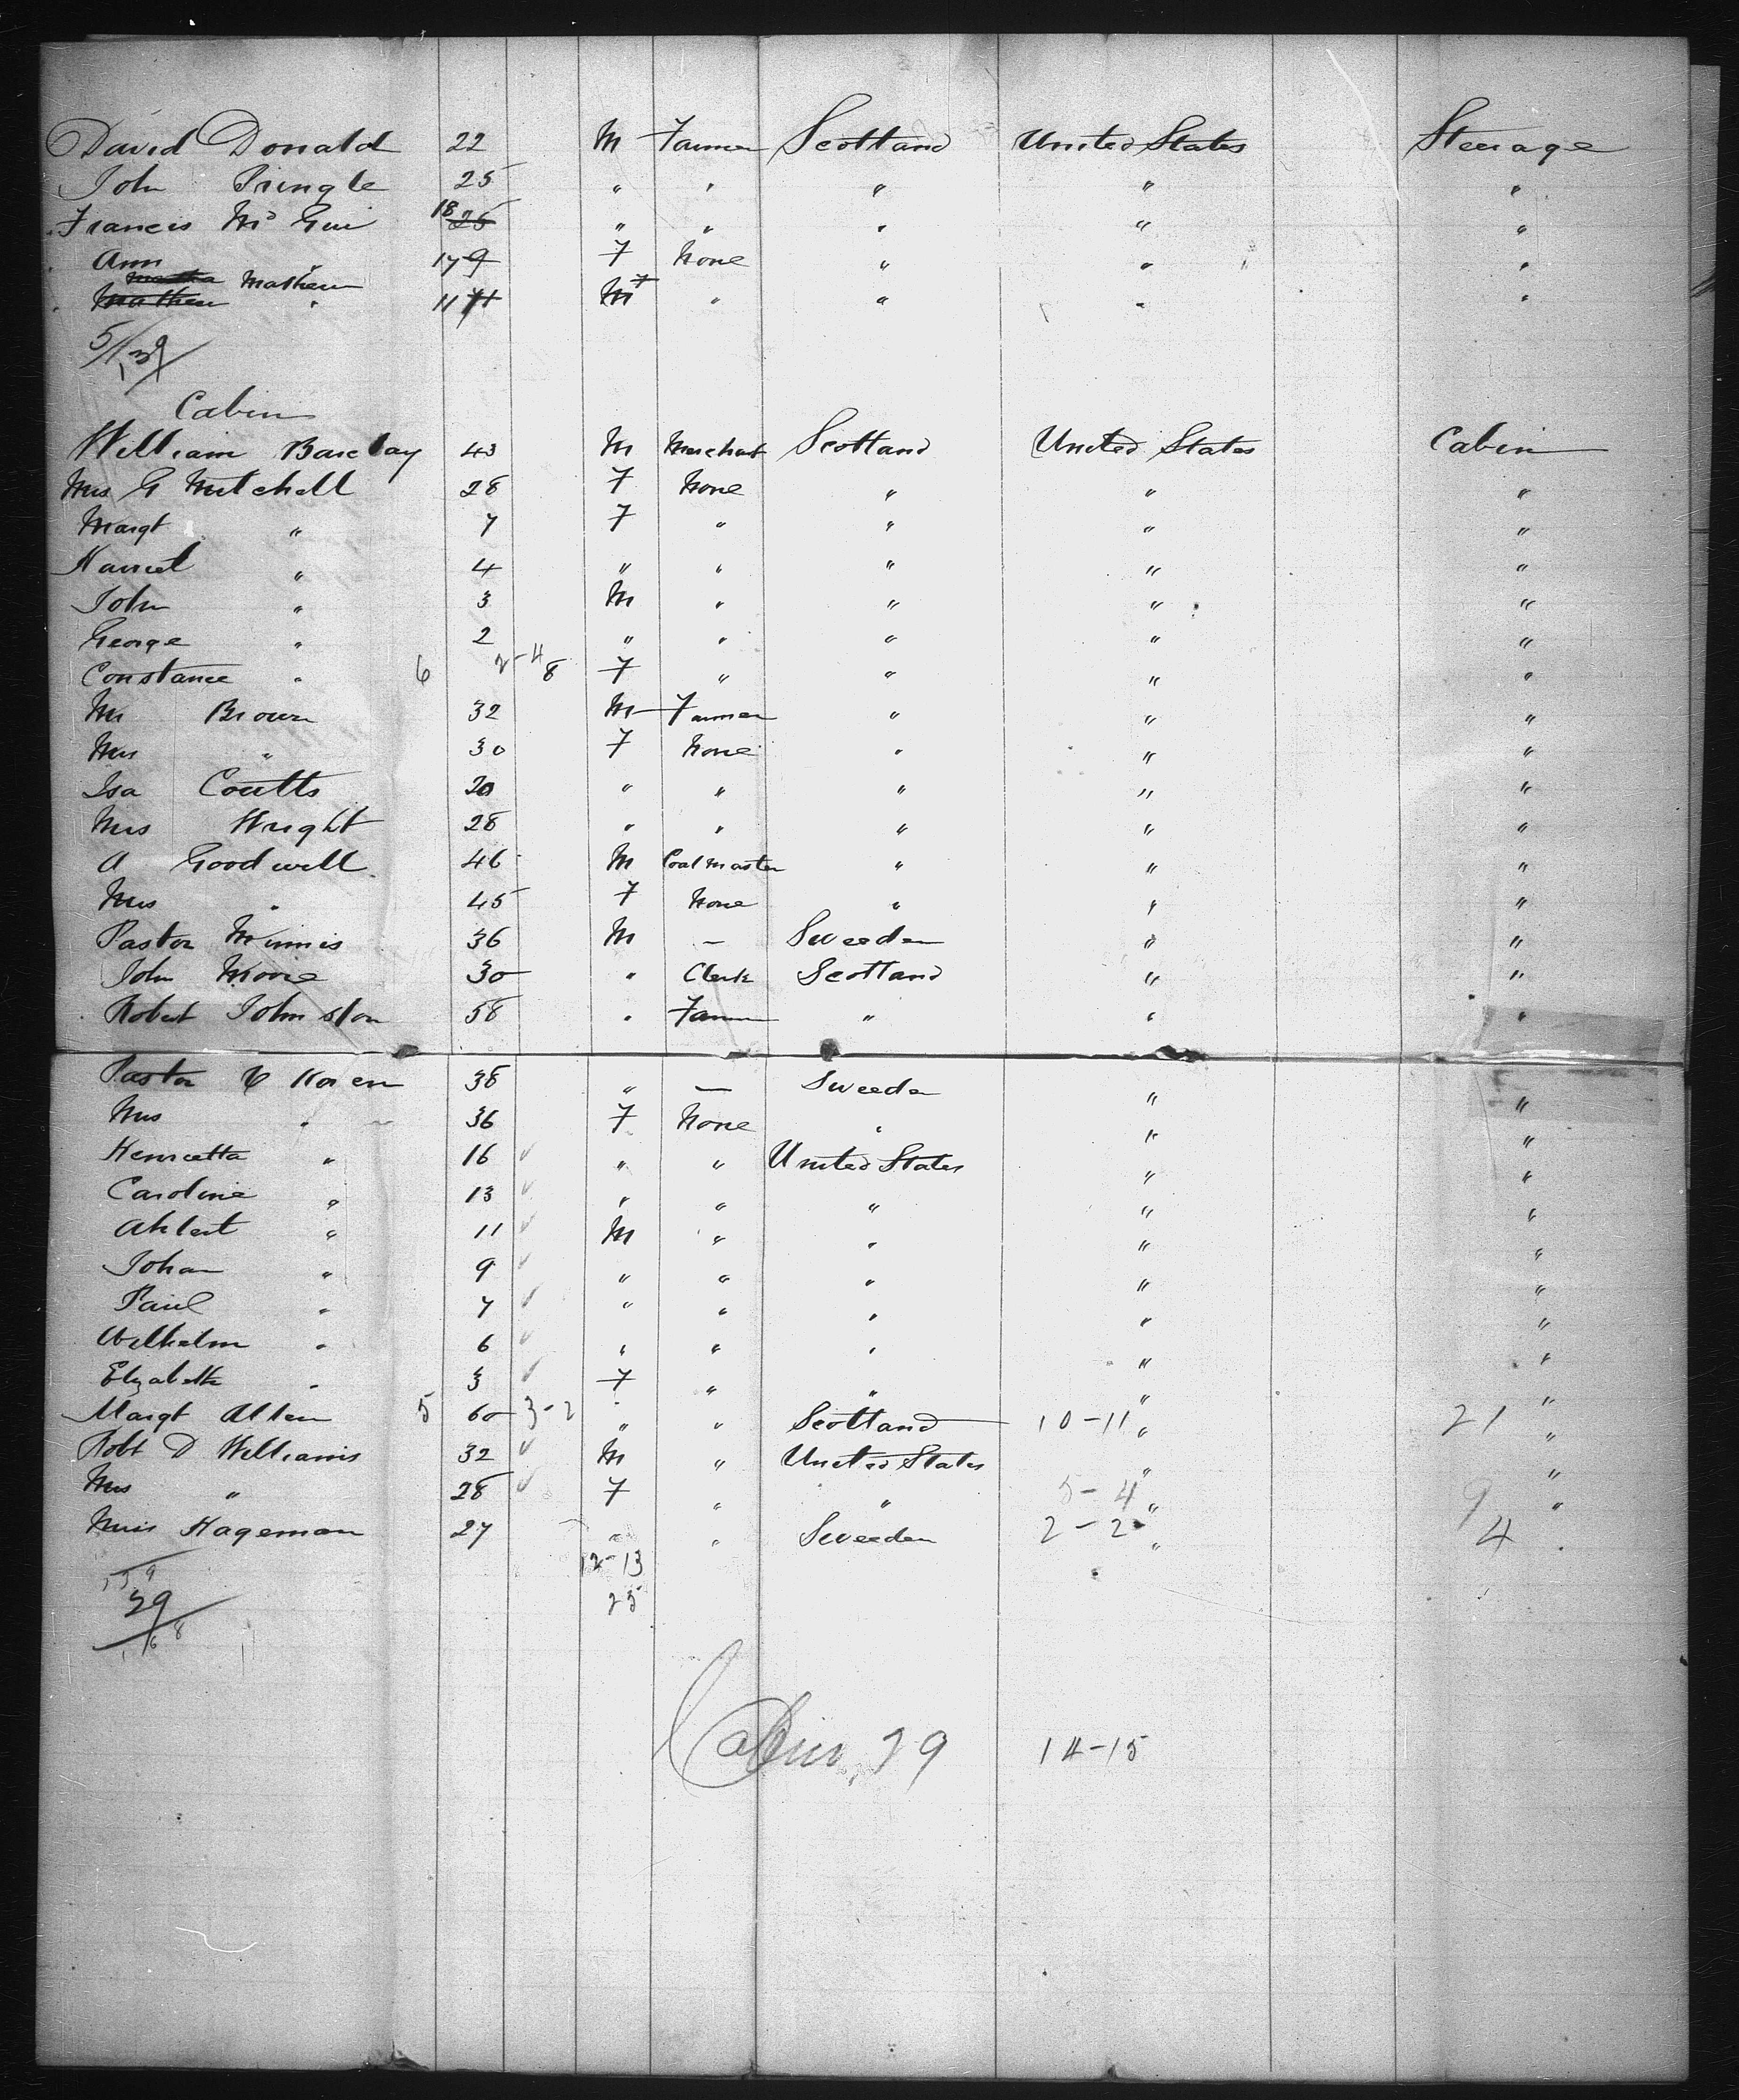 David Donald 22 M Farmer Scotland United States Steerage
John Pringle 25 " " " " "
Francis Mc Gui 18 25 " " " " "
Ann " 17 9 F None " " "
Mathew
Mathew " 11 11 M F " " " "
5/139
Cabin
William Barclay 43 M Merchant Scotland United States Cabin
Mrs G Mitchell 28 F None " " "
Margt " 7 F " " " "
Harriet " 4 " " " " "
John " 3 M " " " "
George " 2 " " " " "
Constance " 6 2-4 8 F " " " "
Mr Brown 32 M Farmer " " "
Mrs " 30 F None " " "
Isa Coutts 20 " " " " "
Mrs Wright 28 " " " " "
A Goodwill 46 M Coal Master " " "
Mrs " 45 F None " " "
Pastor Minnis 36 M — Sweeden " "
John Moore 30 " Clerk Scotland " "
Robert Johnston 58 " Farmer " " "
Pastor V Koren 38 " — Sweeden " "
Mrs " 36 F None " " "
Henrietta " 16 " " United States " "
Caroline " 13 " " " " "
Ahlert " 11 M " " " "
Johan " 9 " " " " "
Paul " 7 " " " " "
Wilhelm " 6 " " " " "
Elizabeth " 3 F " " " "
Margt Allen 5 60 3-2 " " Scotland 10-11 " 21 "
Robt D Williams 32 M " United States " "
Mrs " 28 F " " 5-4 " 9 "
Miss Hageman 27 " " Sweeden 2-2 " 4 "
12-13
29 25
68
Cabin, 29 14-15